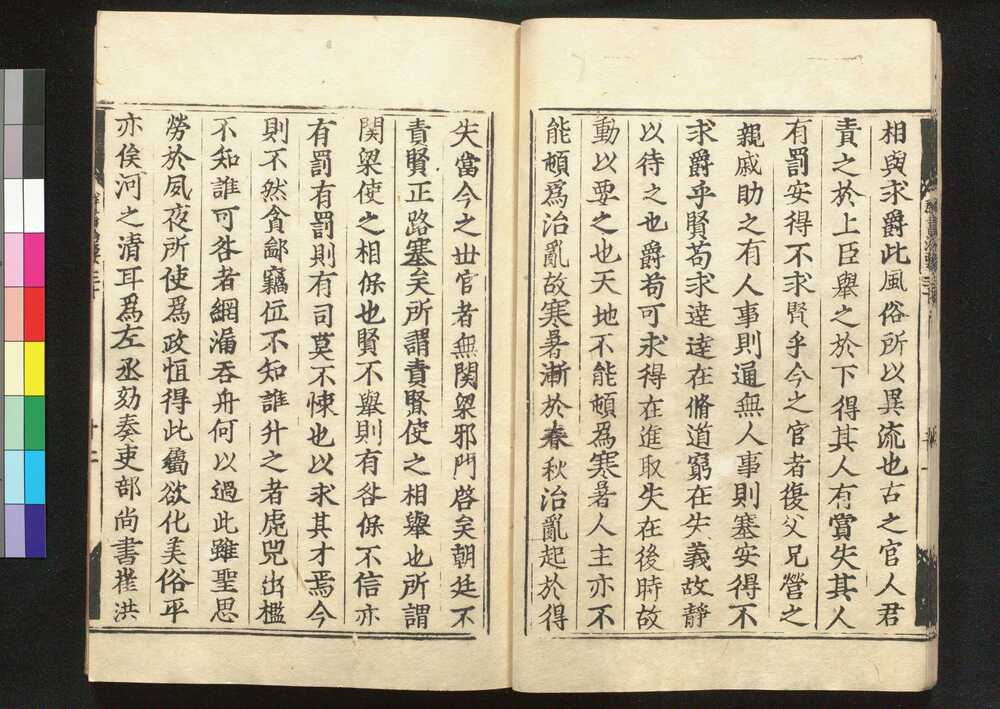 相與求爵此風俗所以異流也古之官人君
責之於上臣舉之於下得其人有賞失其人
有罰安得不求賢乎今之官者復父兄營之
親戚助之有人事則通無人事則塞安得不
求爵乎賢苟求達達在脩道窮在失義故靜
以待之也爵苟可求得在進取失在後時故
動以要之也天地不能頓爲寒暑人主亦不
能頓爲治亂故寒暑漸於春秋治亂起於得
失當今之世官者無関梁邪門啓矣朝廷不
責賢正路塞矣所謂責賢使之相舉也所謂
関梁使之相保也賢不舉則有咎保不信亦
有罰有罰則有司莫不悚也以求其才焉今
則不然貪鄙竊位不知誰升之者虎兕出檻
不知誰可咎者網漏吞舟何以過此雖聖思
勞於夙夜所使爲政恒得此屬欲化美俗平
亦俟河之清耳爲左丞劾奏吏部尚書崔洪